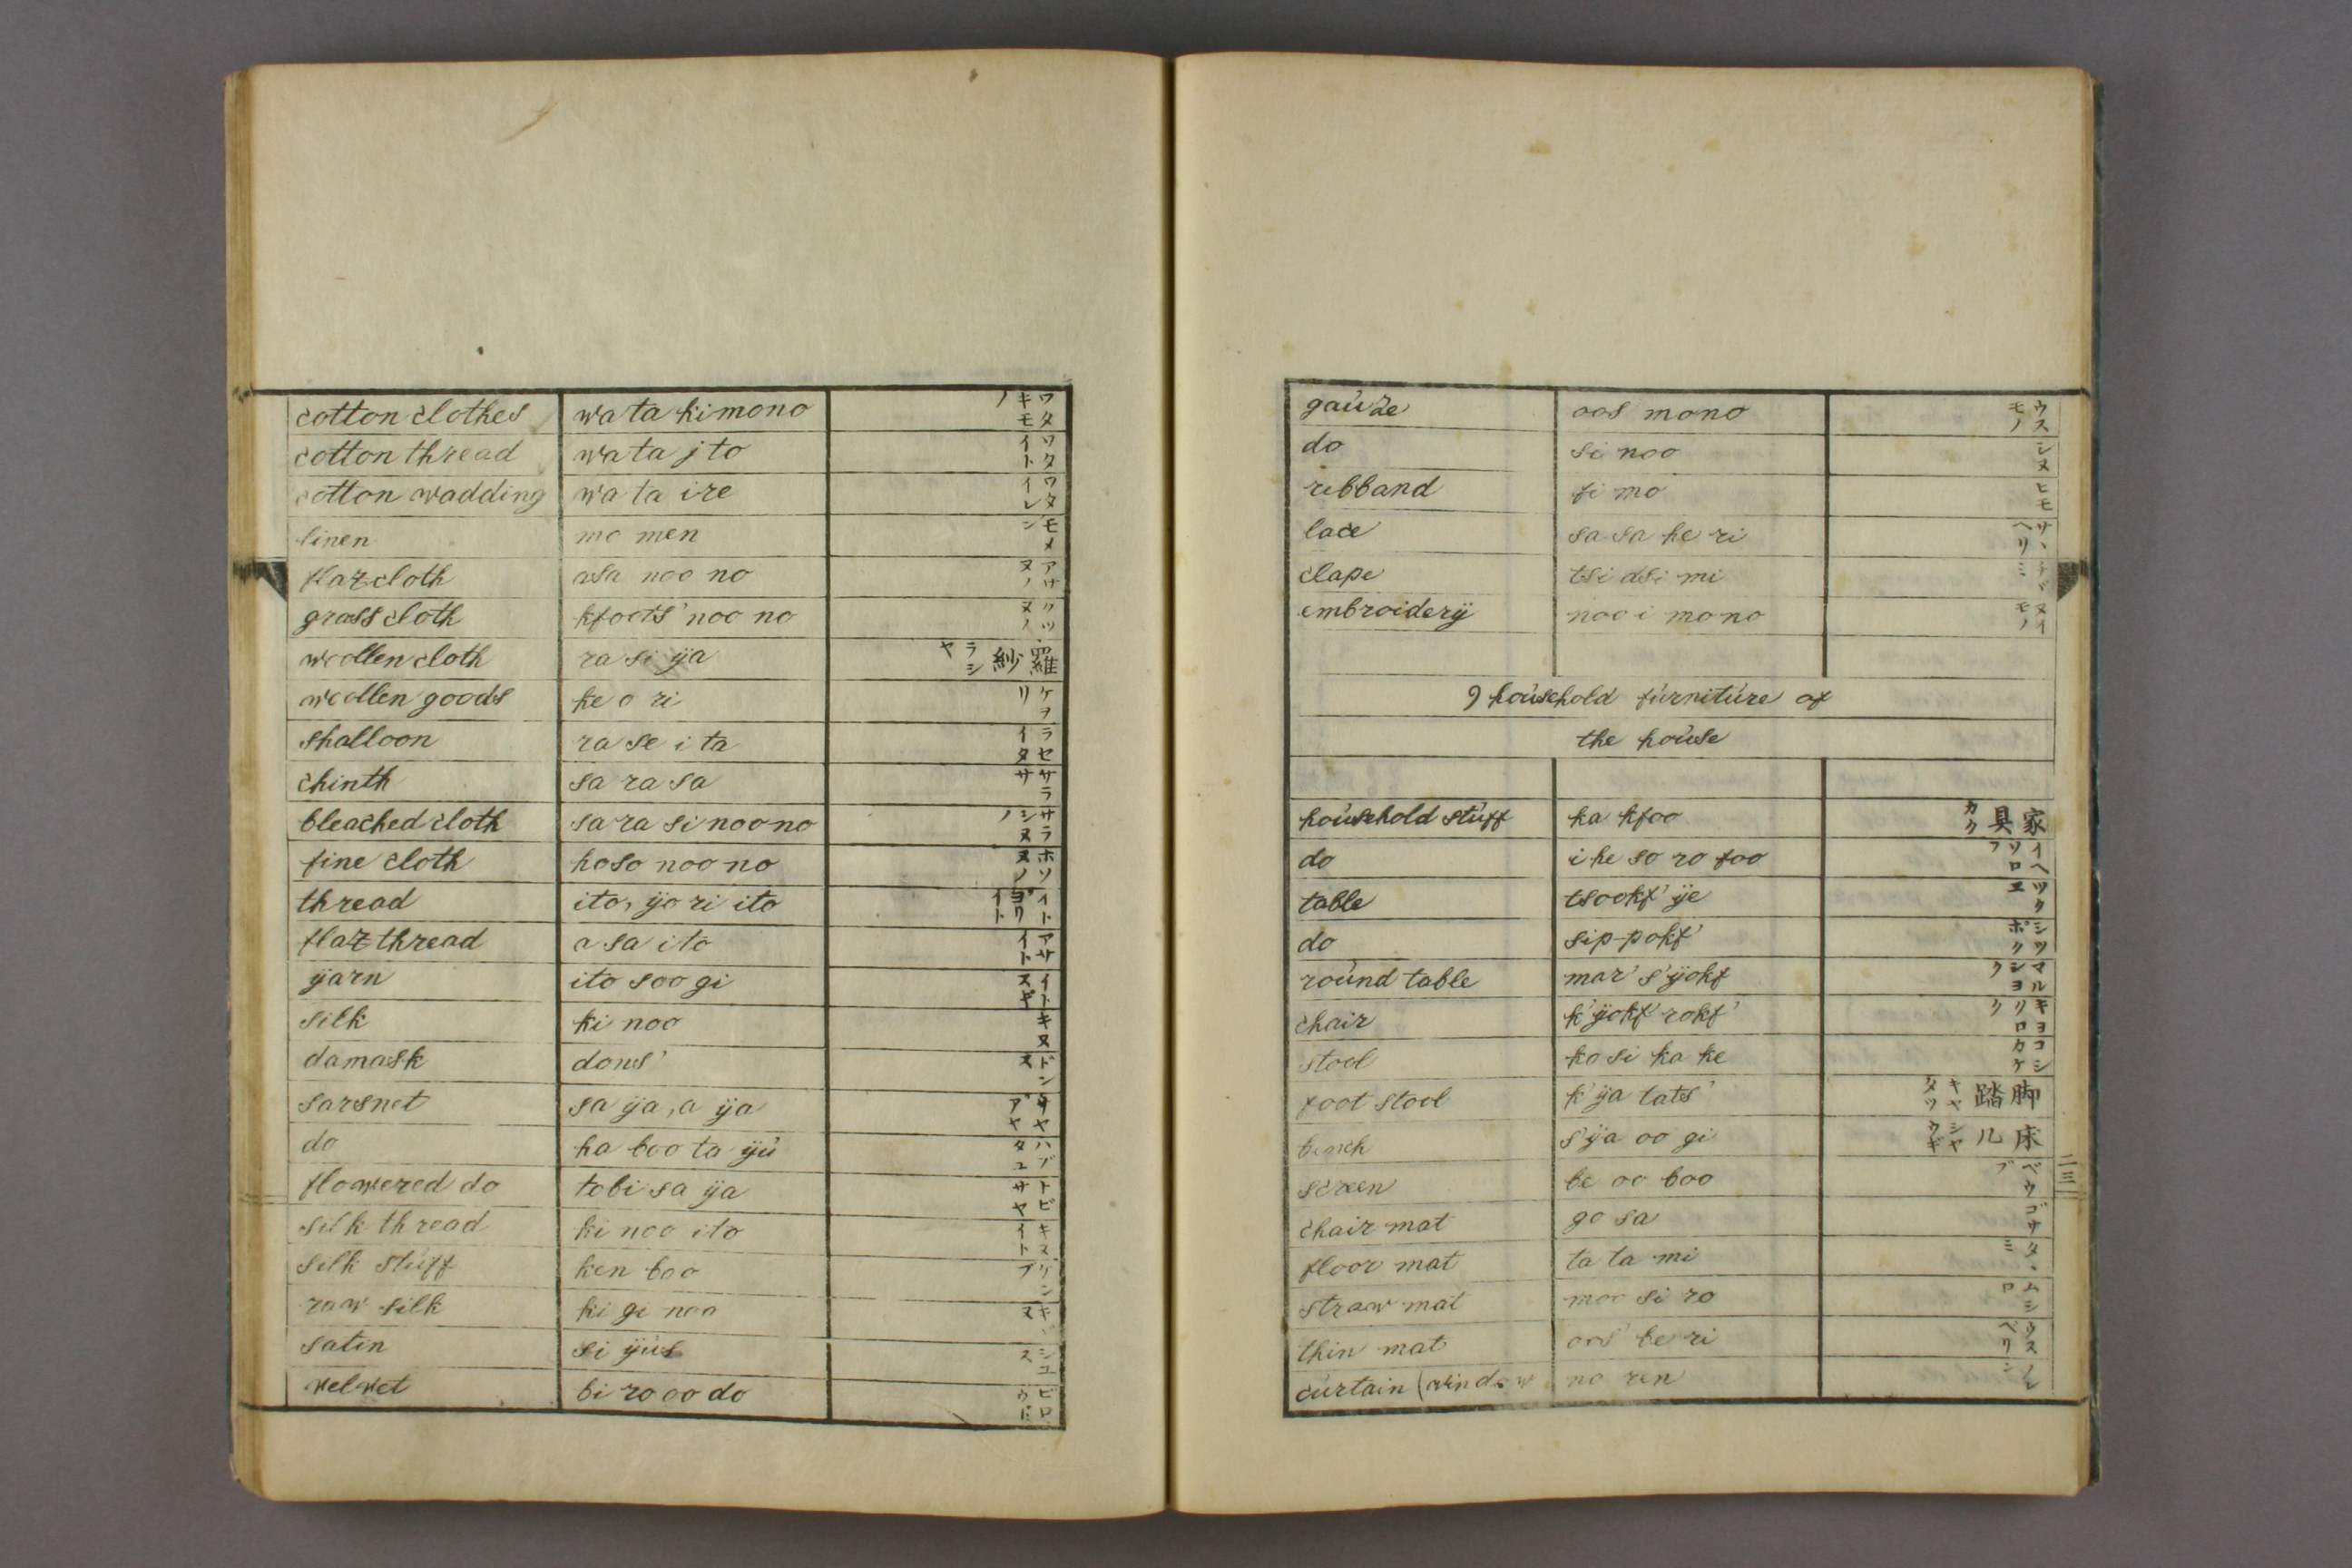 cotton clothes wa ta ki mono ワタキモノ
cotton thread wa ta j to ワタイト
cotton wadding wa ta ire ワタイレ
linen mo men モメン
flaz cloth asa noo no アサヌノ
grass cloth kfoots' noo no クツヌノ
woollen cloth ra si ÿa 羅紗 ラシヤ
woollen goods ke o ri ケヲリ
shalloon ra se i ta ラセイタ
chinth sa ra sa サラサ
bleached cloth sa ra si noo no サラシヌノ
fine cloth hoso noo no ホソヌノ
thread ito, ÿo ri ito イト ヨリイト
flaz thread a sa ito アサイト
ÿarn ito soo gi イトスギ
silk ki noo キヌ
damask dons' ドンス
sarsnet sa ÿa, a ÿa サヤ アヤ
do ha boo ta ÿú ハブタユ
flowered do tobi sa ÿa トビサヤ
silk thread ki noo ito キヌイト
silk stúff ken boo ケンブ
raw silk ki gi noo キギヌ
satin si ÿús シユス
velvet bi ro oo do ビロウド
gaúze oos mono ウスモノ
do si noo シヌ
ribband fi mo ヒモ
lace sa sa he ri サヽヘリ
clape tsi dsi mi チヂミ
embroiderÿ noo i mo no ヌイモノ
9 hoúsehold fúrnitúre of
the hoúse
hoúsehold stúff ka kfoo 家具 カク
do i he so ro foo イヘソロフ
table tsookf' ÿe ツクエ
do sip-pokf' シツポク
roúnd table mar' s'ÿokf マルシヨク
chair k'ÿokf' rokf' キヨクロク
stool ko si ka ke コシカケ
foot stool k'ÿa tats' 脚踏 キヤタツ
bench s'ÿa oo gi 床几 シヤウギ
screen be oo boo ベウブ
chair mat go sa ゴサ
floor mat ta ta mi タヽミ
straw mat moo si ro ムシロ
thin mat oos' be ri ウスベリ
cúrtain (window no ren ノレン
二十三